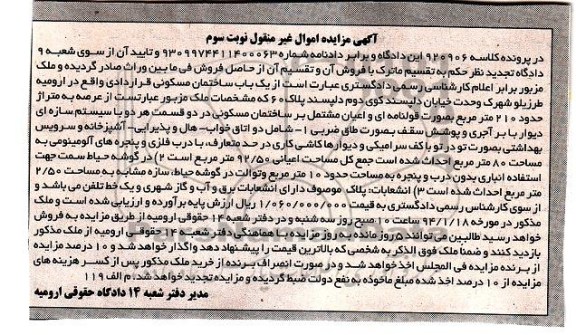 آگهی مزایده اموال غیر منقول نوبت سوم
در پرونده کلاسه ۹۲۰۹۰۶ این دادگاه و برابر دادنامه شماره ۹۳۰۹۹۷۴۴۱۱۴۰۰۰۶۳ و تایید آن از سوی شعبه ۹
دادگاه تجدید نظر حکم به تقسیم ماترک با فروش آن و تقسیم آن از حاصل فروش فی ما بین وراث صادر گردیده و ملک
مزبور برابر اعلام کارشناسی رسمی دادگستری عبارت است از یک باب ساختمان مسکونی قراردادی واقع در ارومیه
طرزیلو شهرک وحدت خیابان دلپسند کوی دوم دلپسند پلاک ۶۰ که مشخصات ملک مزبور عبارتست از عرصه به متراژ
حدود ۲۱۰ متر مربع بصورت قولنامه ای و اعیان مشتمل بر ساختمان مسکونی در دو قسمت هر دو با سیستم سازه ای
دیوار با بر آجری و پوشش سقف بصورت طاق ضربی ۱- شامل دو اتاق خواب- هال و پذیرایی- آشپزخانه و سرویس
بهداشتی بصورت تو در تو با کف سرامیکی و دیوارها کاشی کاری در حد متعارف، با درب فلزی و پنجره های آلومینومی به
مساحت ۸۰ متر مربع احداث شده است جمع کل مساحت اعیانی ۹۲/۵۰ متر مربع است ۲) در گوشه حیاط سمت جهت
استفاده انباری بدون درب و پنجره به مساحت حدود ۱۰ متر مربع وتوالت در گوشه حیاط، سازه مشابه به مساحت ۲/۵۰
متر مربع احداث شده است ۳) انشعابات: پلاک موصوف دارای انشعابات برق و آب و گاز شهری و یک خط تلفن می باشد و
از سوی کارشناس رسمی دادگستری به قیمت ۱/۰۶۰/۰۰۰/۰۰۰ ریال ارزش پایه برآورده و ارزیابی شده است و ملک
مذکور در مورخه ۹۴/۱/۱۸ ساعت ۱۰ صبح روز سه شنبه و در دفتر شعبه ۱۴ حقوقی ارومیه از طریق مزایده به فروش
خواهد رسید طالبین می توانند ۵ روز مانده به روز مزایده با هماهنگی دفتر شعبه ۱۴ حقوقی ارومیه از ملک مذکور
بازدید کنند و ضمنا ملک فوق الذکر به شخصی که بالاترین قیمت را پیشنهاد دهد واگذار خواهد شد و ۱۰ درصد مزایده
از برنده مزایده فی المجلس اخذ خواهد شد و در صورت انصراف برنده از خرید ملک مذکور پس از کسر هزینه های
مزایده از ۱۰ درصد اخذ شده مبلغ ماخوذه به نفع دولت ضبط گردیده و مزایده تجدید خواهد شد. م الف ۱۱۹
مدیر دفتر شعبه ۱۴ دادگاه حقوقی ارومیه